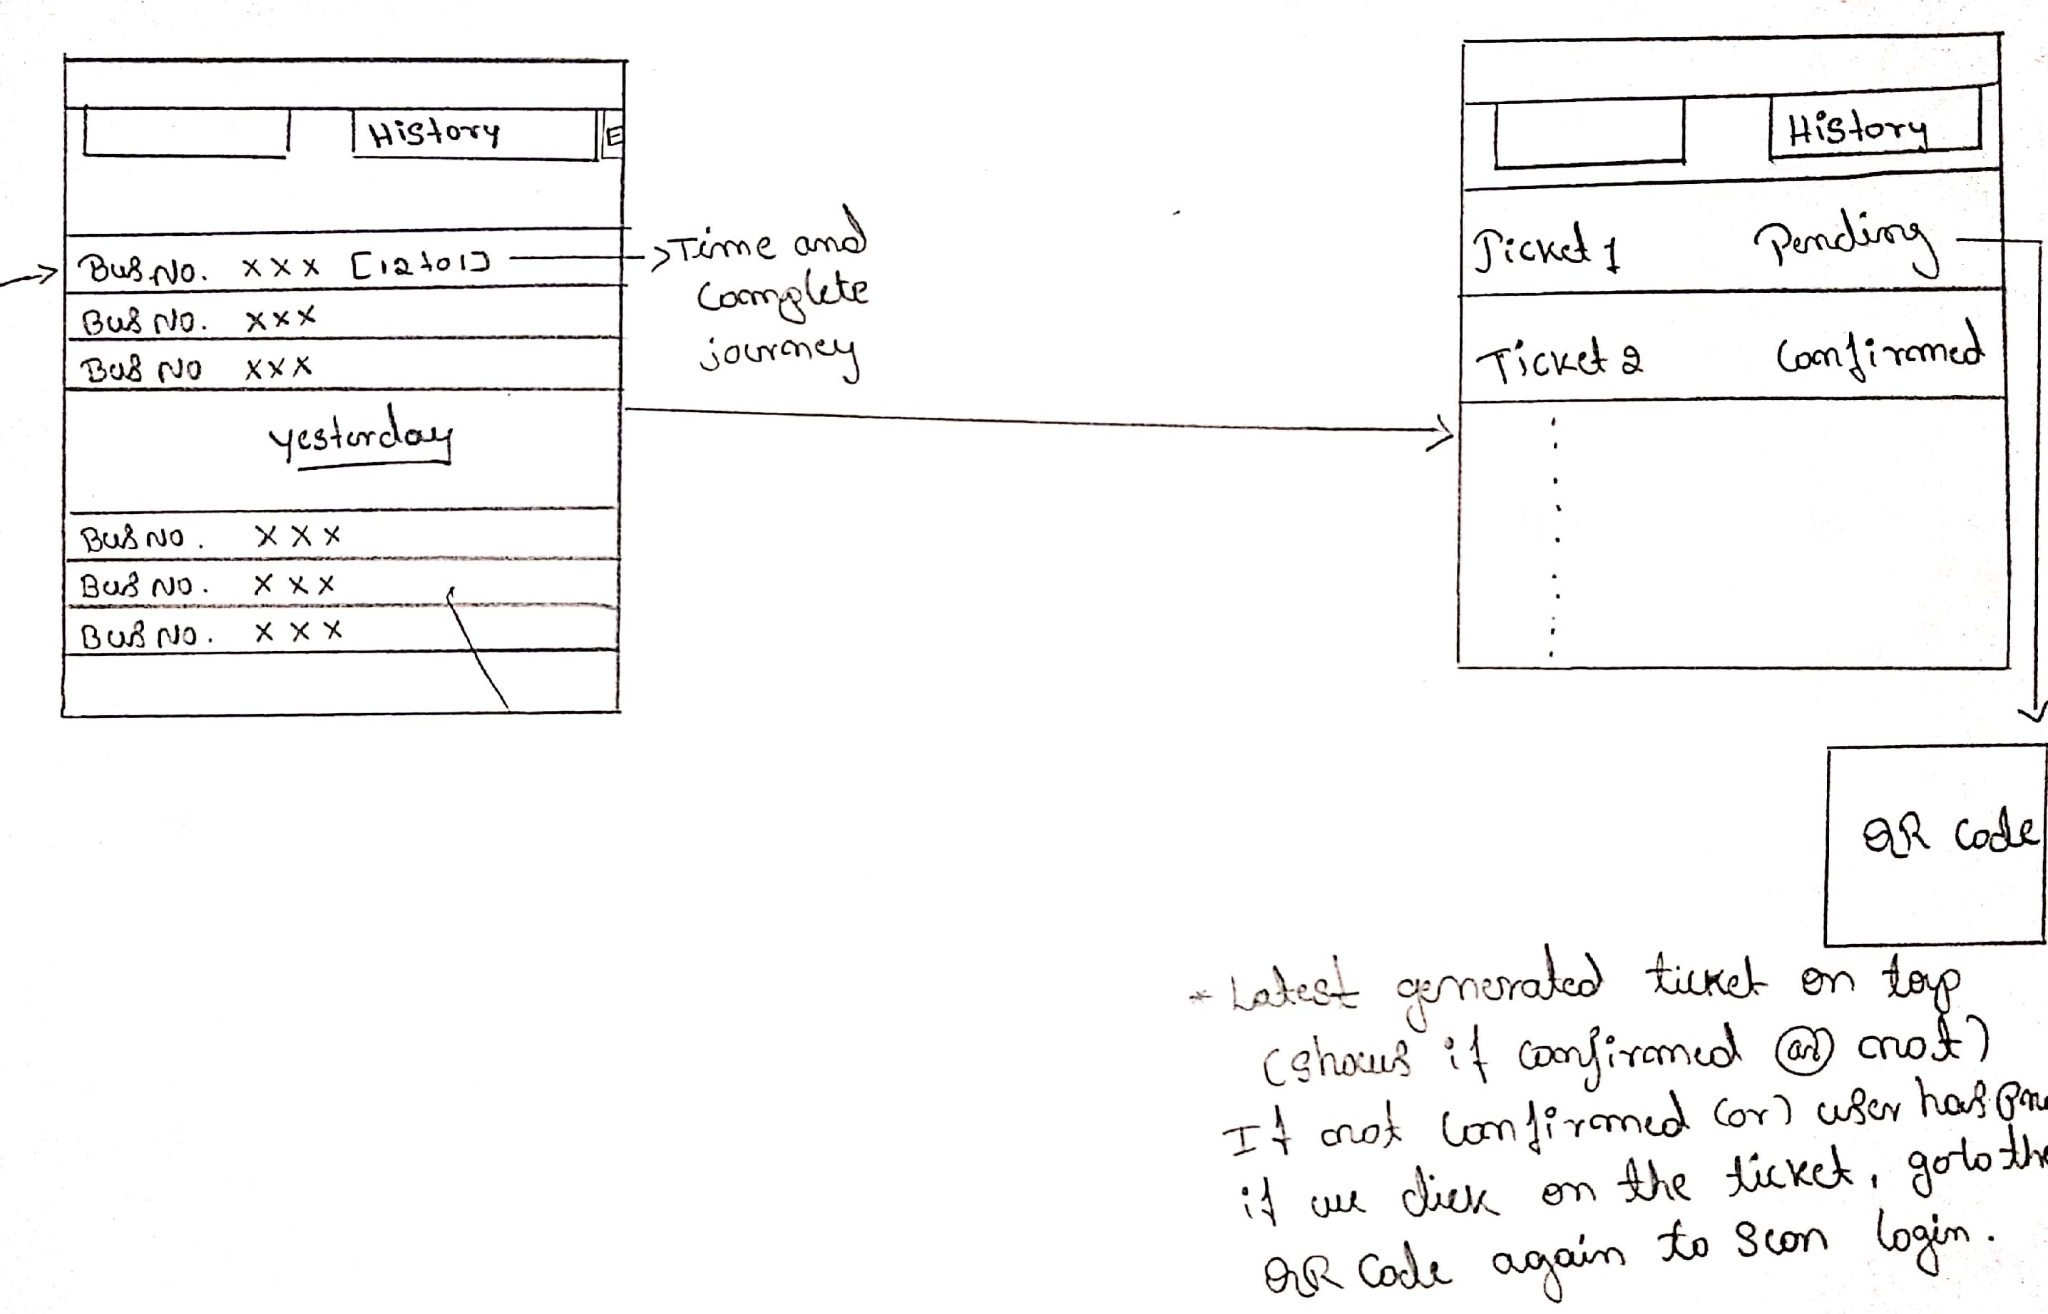 History
E
Bus No. xxx [12 to 1]
Time and
complete
journey
Bus No. xxx
Bus No xxx
yesterday
Bus No. x x x
Bus No. x x x
Bus No. x x x
History
Ticket 1 Pending
Ticket 2 Confirmed
QR code
* Latest generated ticket on top
(shows if confirmed (or) not)
If not confirmed (or) user has
if we click on the ticket, go to the
QR Code again to scan login.